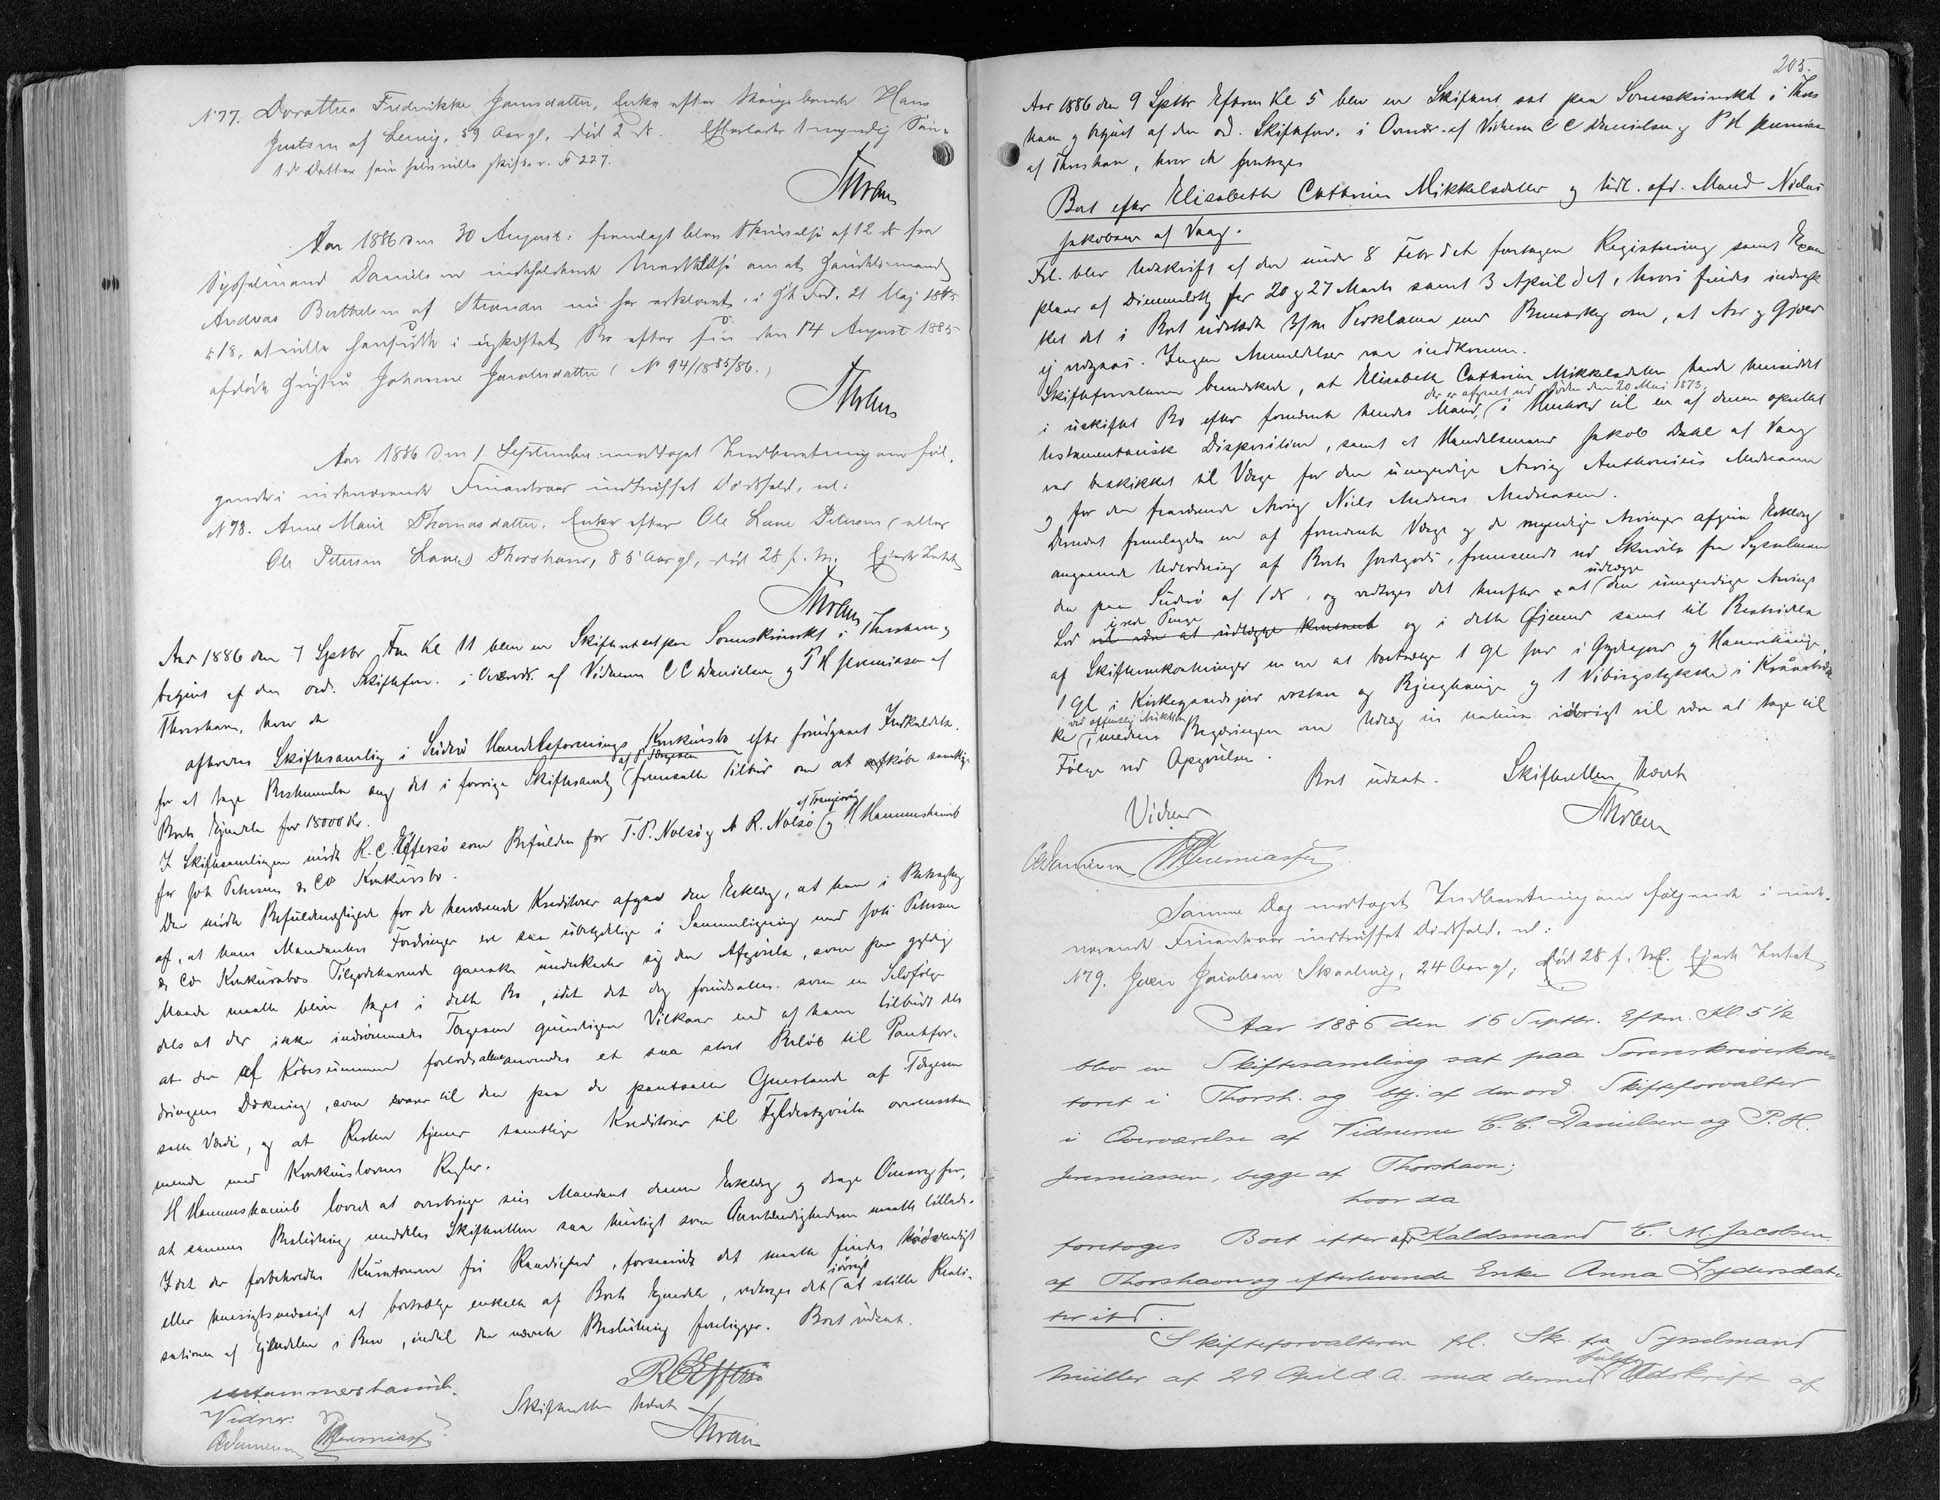 N 77. Dorothea Fredrikke Joensdatter, Enke efter Hans
af 59 Aar gl. død 2 ds. Efterlader 1 myndig Søn
1 do Datter som selv ville skifte v. N 227.
Thran
Aar 1886 den 30 August: fremlagt blev Skrivelse af 12 ds fra
Sysselmand Danielsen indeholdende om at Handelsmand
Andreas Berthelsen af Strænder nu har erklæret, i 21 Maj 1845
§ 18, at ville hensidde i uskiftet Bo efter sin den 14 August 1885
afdøde Hustru Johanne Jacobsdatter (N 94/1885/86.)
Thran
Aar 1886 den 1 September modtaget Indberetning om føl-
gende i nærværende Finantsaar indtruffet Dødsfald, nl:
N 78. Anne Marie Thomasdatter, Enke efter Ole Lane Petersen (eller
Ole Petersen Lane) Thorshavn, 85 Aar gl, død 28 f. M. Ejede Intet
Thran
Aar 1886 den 7 Septbr Fm Kl 11 blev en Skifteret sat paa Sorenskriverkt i Thorshavn og
betjent af den ord. Skifteforv. i Overvær. af Vidnerne C C Danielsen og P H Jeremiasen af
Thorshavn, hvor da
afholdtes Skiftesamling i Suderø Handelsforenings Konkursbo efter forudgaaet Indkaldelse
for at tage Bestemmelse ang det i forrige Skiftesamlg af Thegesen fremsatte Tilbud om at afkøbe samtlige
Boets Ejendele for 18000 Kr.
I Skiftesamlingen mødte R. C. Effersø som Befuldm for T. P. Nolsø og N. R. Nolsø af Trangisvaag og H Hammershaimb
for Joh Petersens & Co Konkursbo.
Den mødte Befuldmægtigede for de herværende Kreditorer afgav den Erklæg, at han i Betragtng
af, at hans Mandanters Fordringer ere saa ubetydelige i Sammenligning med Joh Petersen
& Co Konkursbos Tilgodehavende ganske underkaster sig den Afgørelse, som paa gyldig
Maade maatte blive taget i dette Bo, idet det dog forudsættes som en Selvfølge
dels at der ikke indrømmes Thegesen gunstigere Vilkaar end af ham tilbudt dels
at der af Købesummen forlods alene anvendes et saa stort Beløb til Pantefor-
dringens Dækning, som svarer til den paa de pantsatte Genstande af Thegesen
satte Værdi, og at Resten tjener samtlige Kreditorer til Fyldestgørelse overensstem-
mende med Konkurslovens Regler.
H Hammershaimb lovede at overbringe sin Mandant denne Erklæg og drage Omsorg for,
at sammes Beslutning meddeltes Skifteretten saa hurtigt som Omstændighederne maatte tillade.
Idet der forbeholdtes Kuratorerne fri Raadighed, forsaavidt det maatte findes nødvendigt
eller hensigtsmæssigt at bortsælge enkelte af Boets Ejendele, vedtoges det iøvrigt at stille Reali-
sationen af Ejendelene i Bero, indtil den nævnte Beslutning foreligger. Boet udsat.
R C Effersø
HHammershaimb. Skifteretten hævet
Vidner: Thran
CCDanielsen PHJeremiasen

205.
Aar 1886 den 9 Septbr Efterm Kl 5 blev en Skifteret sat paa Sorenskriverkt i Thors
havn og betjent af den ord. Skifteforv. i Overvær. af Vidnerne C C Danielsen og P H Jeremiasen
af Thorshavn, hvor da foretoges
Boet efter Elisabeth Cathrine Mikkelsdatter og tidl. afd. Mand Niclas
Jakobsen af Vaag.
Frl. blev Udskrift af den under 8 Febr d A foretagne Registrering samt Exem
plarer af Dimmalætting for 20 og 27 Marts samt 3 April d A, hvori findes indryk
ket det i Boet udstedte 3/m Proklama med Bemærkg om, at Arv og Gjæld
ej vedgaas. Ingen Anmeldelser var indkommen.
Skifteforvalteren bemærkede, at Elisabeth Cathrine Mikkelsdatter havde hensiddet
i uskiftet Bo efter forenævnte hendes Mand, der er afgaaet ved Døden den 20 Mai 1873, i Henhold til en af denne oprettet
testamentarisk Disposition, samt at Handelsmand Jakob Dahl af Vaag
var beskikket til Værge for den umyndige Arving Anthonius Andreasen
og for den fraværende Arving Niels Andreas Andreasen.
Dernæst fremlagdes en af forenævnte Værge og de myndige Arvinger afgiven Erklæg
angaaende Udlodning af Boets Jordegods, fremsendt ved Skrivelse fra Sysselman
den paa Suderø af 1 ds, og vedtoges det herefter at udlægge den umyndige Arvings
Lod i rede Penge og i dette Øjemed samt til Bestridelse
af Skifteomkostninger m m at bortsælge 1 Gl Jord i Gyrdegjord og Hamrehauge,
1 Gl i Kirkegaardsjord vestan og Bjerghauge og 1 Vibirgstykke i
ke ved offentlig Auktion, medens Begæringen om Udlæg in natura iøvrigt vil være at tage til
Følge ved Opgørelsen.
Boet udsat. Skifteretten hævet
Vidner Thran
CCDanielsen PHJeremiasen
Samme Dag modtaget Indberetning om følgende i nær-
værende Finantsaar indtruffet Dødsfald, nl:
N 79. Joen Jacobsen Skaalevig, 24 Aar gl, død 28 f. M. Ejede Intet.
Aar 1886 den 16 Septbr. Eftm. Kl. 5½
blev en Skiftesamling sat paa Sorenskriverkon-
toret i Thorsh. og btj. af den ord. Skifteforvalter
i Overværelse af Vidnerne C. C. Danielsen og P. H.
Jeremiassen, begge af Thorshavn;
hvor da
foretoges Boet efter afd Kaldsmand C. M. Jacobsen
af Thorshavn og efterlevende Enke Anna Lydersdat-
ter ibd.
Skifteforvalteren frl. Skr. fra Sysselmand
Müller af 29 April d. A. med dermed Udskrift af